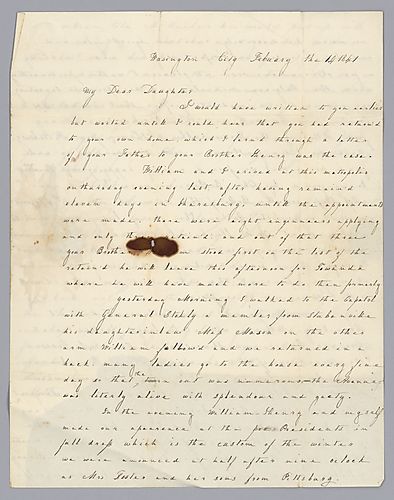 Wasington City Febuary the 14 1841
My Dear Daughter
I would have written to you earlier
but waited untill I could hear that you had returnd
to your own home which I larnd through a letter
of your Father to your Brother Henry was the case.
William and I arived at this metropolus
on thursday evening last after having remaind
eleven days in Haresburg untill the appointments
were made. there were eight engeneers applying
and only three retaind and out of that three
your Brother stood first on the list of the
retaind he will leave this afternoon for Towanda
where he will have much more to do then formerly
yesterday Morning I walked to the Capitol
with General a member from
his daughterinlaw Miss Mason on the other
arm William follow'd and we returned in a
hack many ladies go to the house every fine
day so that the turn out was numerous the Avenue
was literly alive with splendour and gaety.
In the evening William Henry and myself
made our apearance at the Presidents in
full dress which is the custom of the winter
we were anounced at half after nine oclock
as Mrs Foster and her sons from Pittsburg.